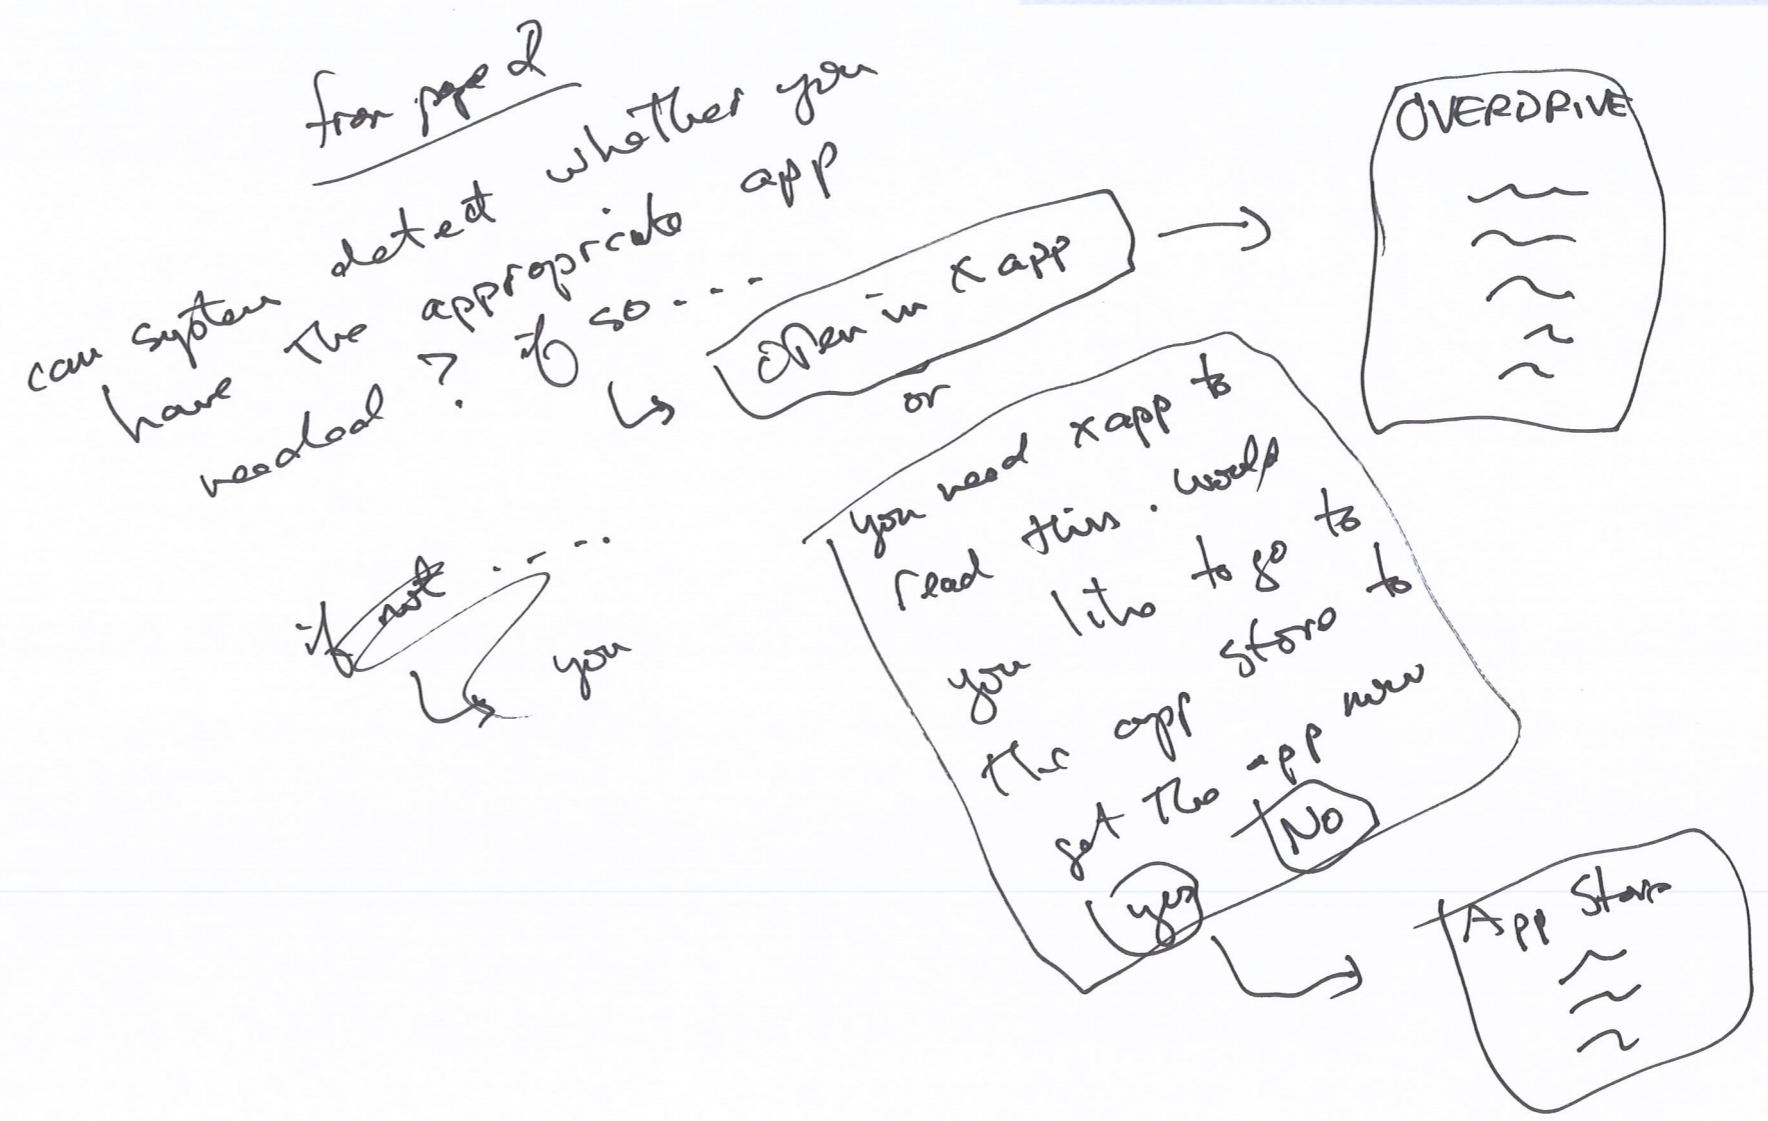 from page 2
can system detect whether you
have the appropriate app
needed? if so...
open in x app
or
OVERDRIVE
you need x app to
read this. would
you like to go to
the app store to
get the app now
yes
No
if not ....
you
App Store